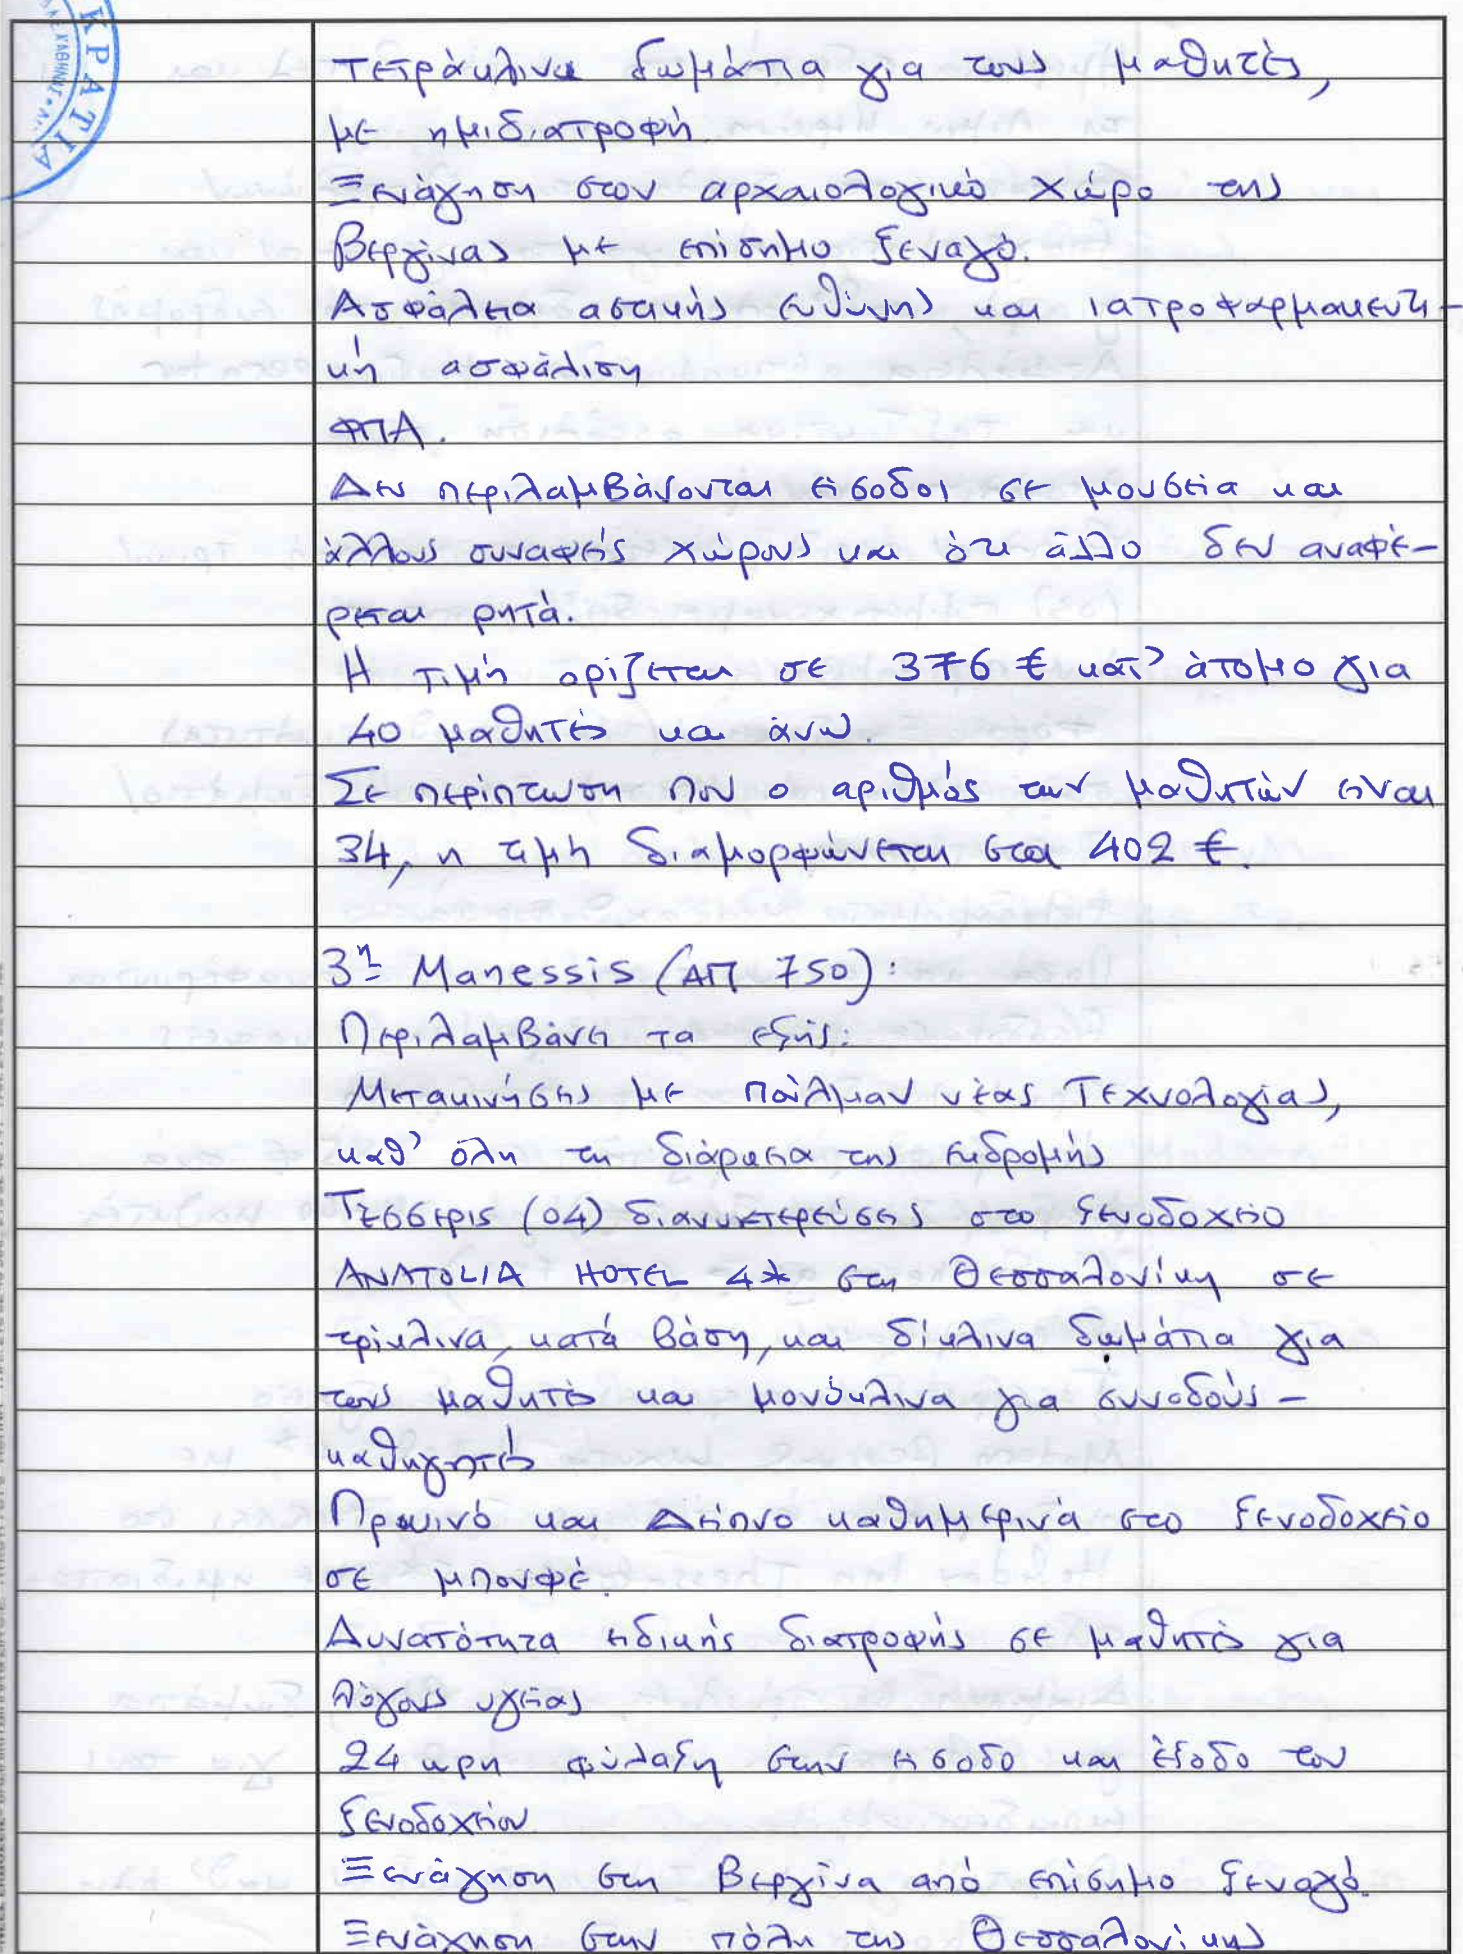 ΚΡΑΤΙΑ
τετράκλινα δωμάτια για τους μαθητές,
με ημιδιατροφή.
Ξενάγηση στον αρχαιολογικό χώρο της
Βεργίνας με επίσημο ξεναγό.
Ασφάλεια αστικής ευθύνης και ιατροφαρμακευτι-
κή ασφάλιση
ΦΠΑ.
Δεν περιλαμβάνονται είσοδοι σε μουσεία και
άλλους συναφείς χώρους και ότι άλλο δεν αναφέ-
ρεται ρητά.
Η τιμή ορίζεται σε 376 € κατ' άτομο για
40 μαθητές και άνω.
Σε περίπτωση που ο αριθμός των μαθητών είναι
34, η τιμή διαμορφώνεται στα 402 €.
3η Manessis (ΑΠ 750):
Περιλαμβάνει τα εξής:
Μετακινήσεις με πούλμαν νέας Τεχνολογίας,
καθ' όλη τη διάρκεια της εκδρομής
Τέσσερις (04) διανυκτερεύσεις στο ξενοδοχείο
ANATOLIA HOTEL 4* στη Θεσσαλονίκη σε
τρίκλινα, κατά βάση, και δίκλινα δωμάτια για
τους μαθητές και μονόκλινα για συνοδούς -
καθηγητές
Πρωινό και Δείπνο καθημερινά στο ξενοδοχείο
σε μπουφέ.
Δυνατότητα ειδικής διατροφής σε μαθητές για
λόγους υγείας
24ωρη φύλαξη στην είσοδο και έξοδο του
ξενοδοχείου.
Ξενάγηση στη Βεργίνα από επίσημο ξεναγό.
Ξενάγηση στην πόλη της Θεσσαλονίκης